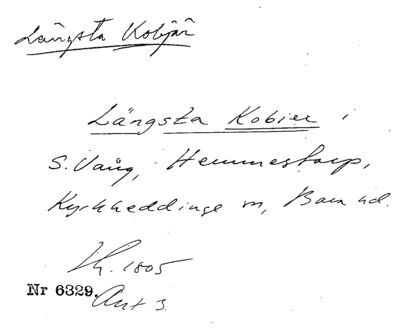 Längsta Kobjär
Längsta Kobier i
S. Vång, Hemmestorp,
Kyrkheddinge sn, Bara hd.
Lh. 1805
Nr 6329. Akt 3.